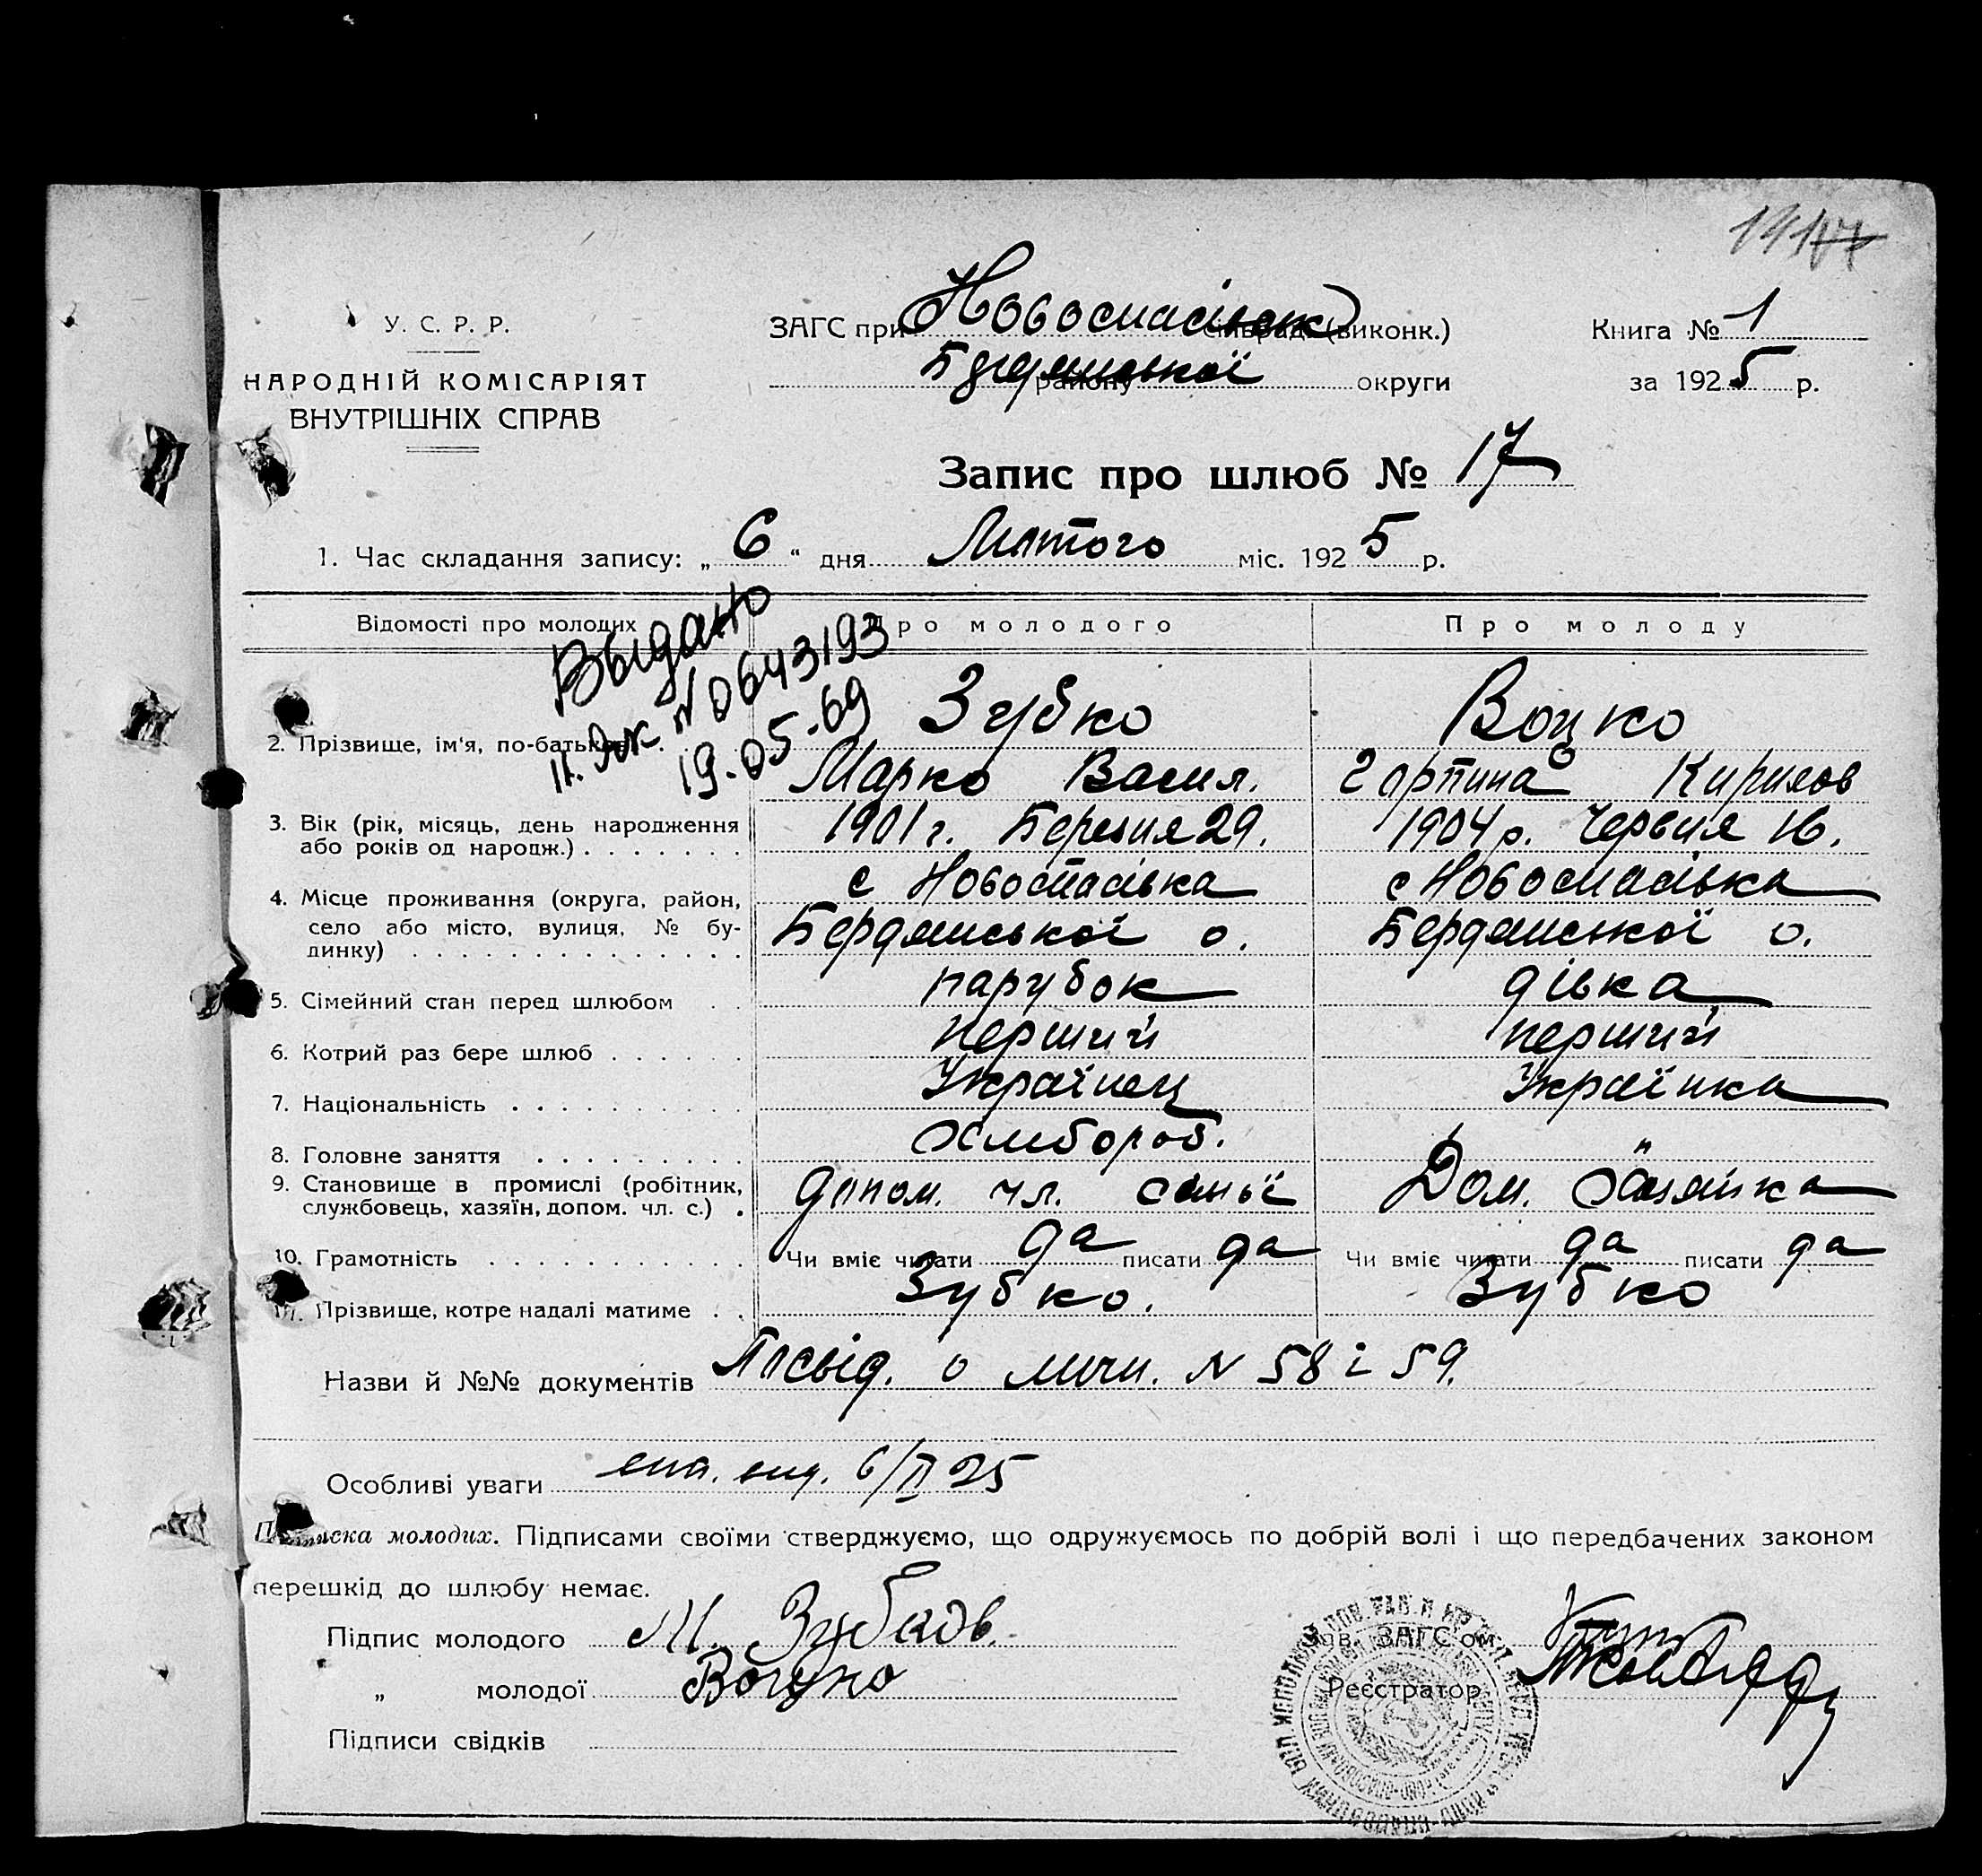 У. С. Р. Р.
НАРОДНІЙ КОМІСАРІЯТ
ВНУТРІШНІХ СПРАВ
ЗАГС при Новоспасівськ (виконк.)
Бердянської округи
Книга № 1
за 1925 р.
Запис про шлюб № 17
1. Час складання запису: „6“ дня Лютого міс. 1925 р.
Відомості про молодих
Про молодого
Про молоду
Выдано
№ 0643193
19-05-69
2. Прізвище, ім'я, по-батькові
Зубко
Марко Васил.
Воцко
Гарпина Кирилов
3. Вік (рік, місяць, день народження
або років од народж.)
1901 г. Березня 29.
1904 р. Червня 16.
4. Місце проживання (округа, район,
село або місто, вулиця, № бу-
динку)
с Новоспасівка
Бердянської о.
с Новоспасівка
Бердянської о.
5. Сімейний стан перед шлюбом
парубок
дівка
6. Котрий раз бере шлюб
перший
перший
7. Національність
Українец
Українка
8. Головне заняття
Хлібороб.
"
9. Становище в промислі (робітник,
службовець, хазяїн, допом. чл. с.)
допом. чл. сімьї
Дом. Хазяйка
10. Грамотність
Чи вміє читати да писати да
Чи вміє читати да писати да
11. Прізвище, котре надалі матиме
Зубко.
Зубко
Назви й №№ документів Посвід. о личн. N 58 і 59.
Особливі уваги 6/II 25
Підписка молодих. Підписами своїми стверджуємо, що одружуємось по добрій волі і що передбачених законом
перешкід до шлюбу немає.
Підпис молодого М. Зубков.
„ молодої Воцко
Підписи свідків
Зав. ЗАГС'ом
Реєстратор